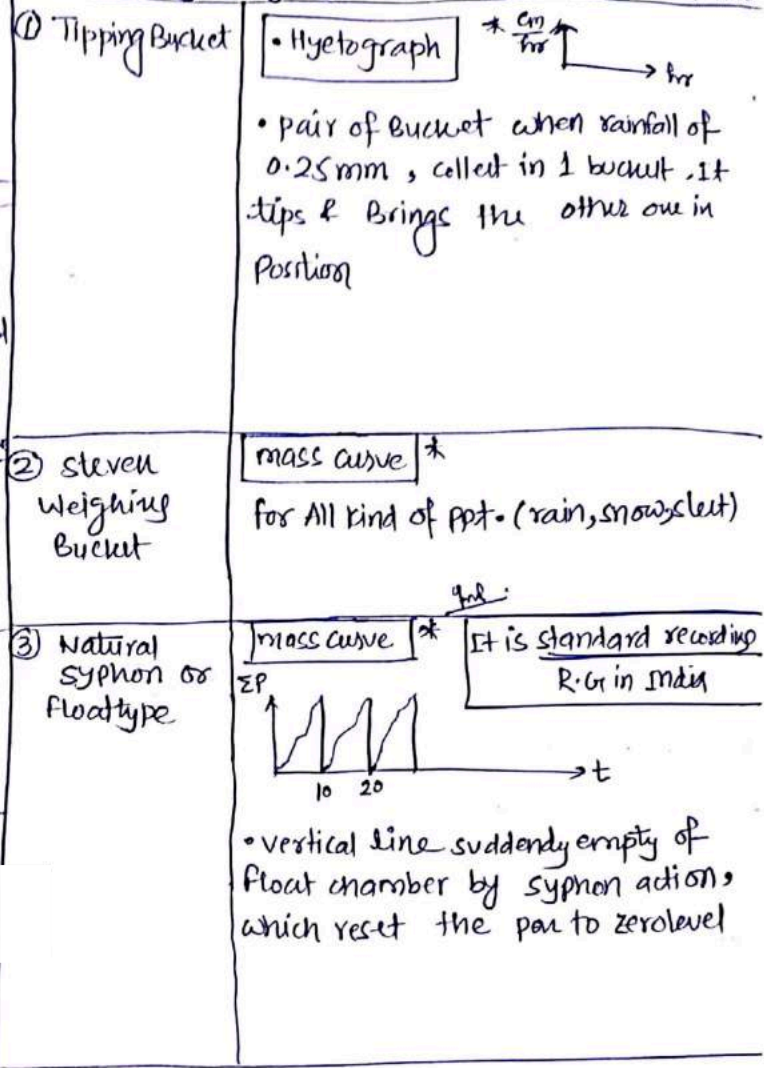 ① Tipping Bucket
• Hyetograph
* cm/hr
hr
• pair of Bucket when rainfall of
0.25mm, collect in 1 bucket. It
tips & Brings the other one in
Position
② Steven
Weighing
Bucket
mass curve *
for All kind of ppt. (rain, snow, sleet)
③ Natural
Syphon or
Float type
mass curve *
It is standard recording
R.G in India
ΣP
10 20
t
• vertical line suddendy empty of
float chamber by syphon action,
which reset the pen to zerolevel